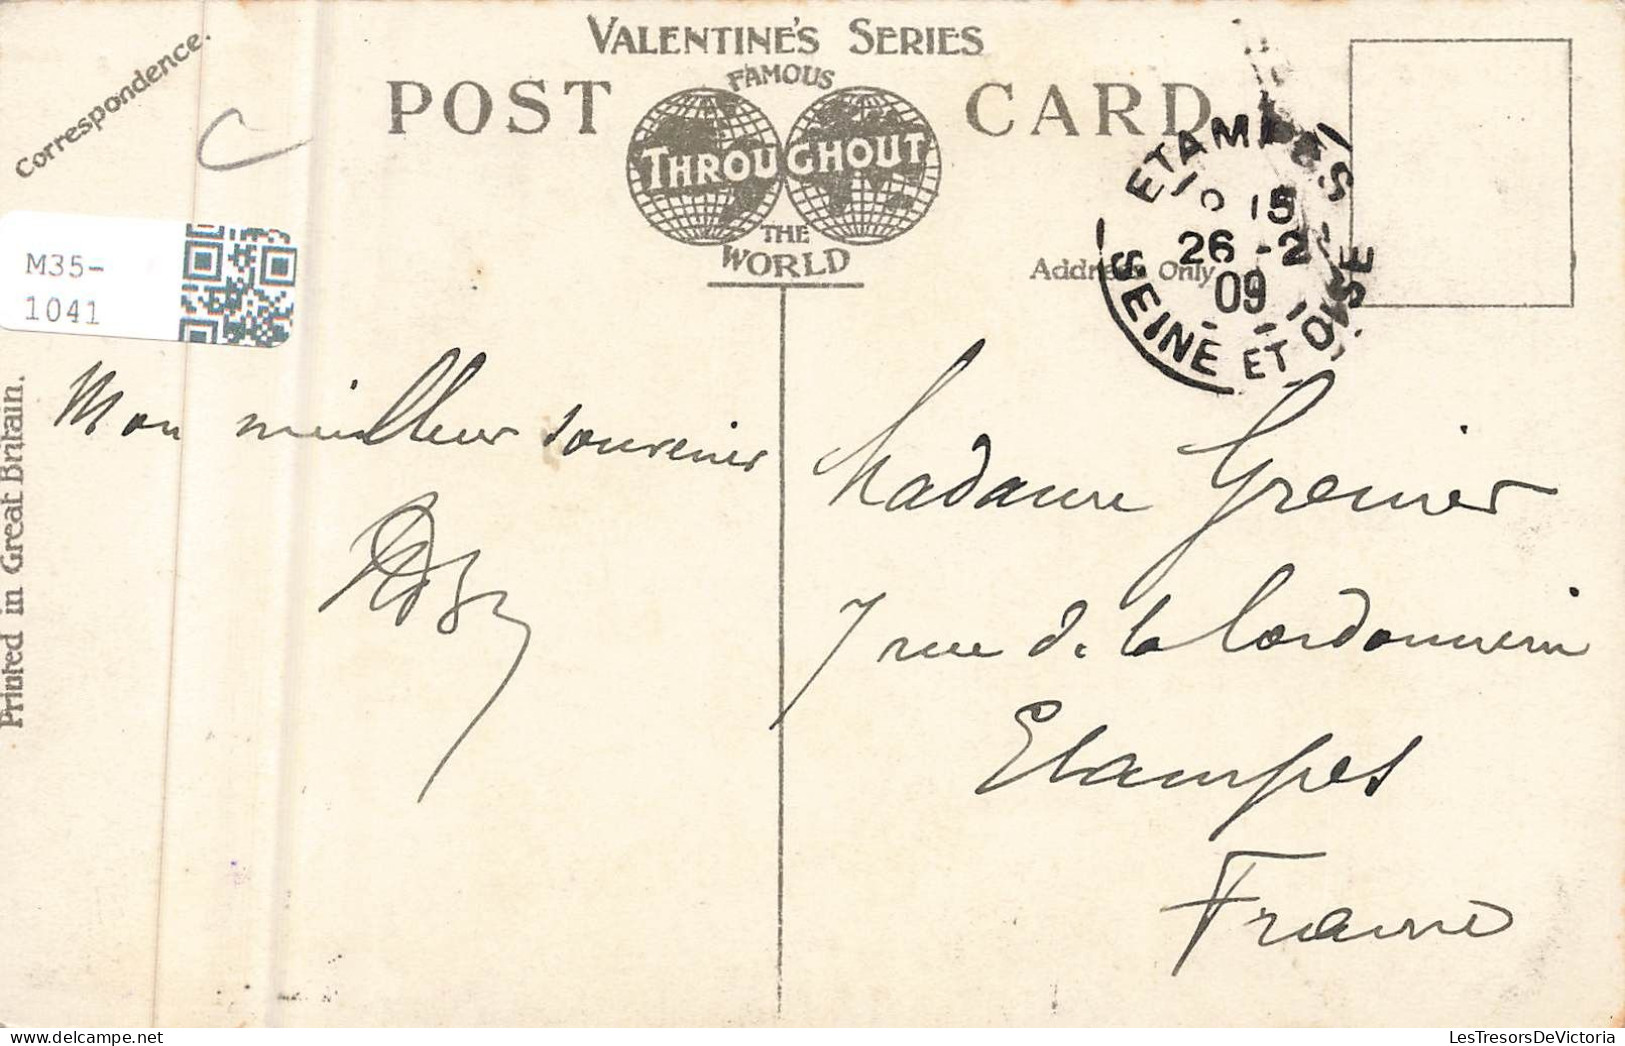 VALENTINE'S SERIES
FAMOUS
POST CARD
THROUGHOUT
THE
WORLD
Correspondence.
Address Only
ETAMPES
15
26 - 2
09
SEINE ET OISE
M35-
1041
Printed in Great Britain.
Mon meilleur souvenir
Madame Grenier
7 rue de la Cordonnerie
Etampes
France
delcampe.net
LesTresorsDeVictoria